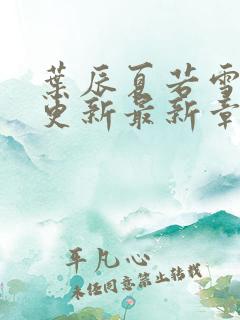 葉辰夏若雪
更新最新章
平凡心
未经同意禁止转载